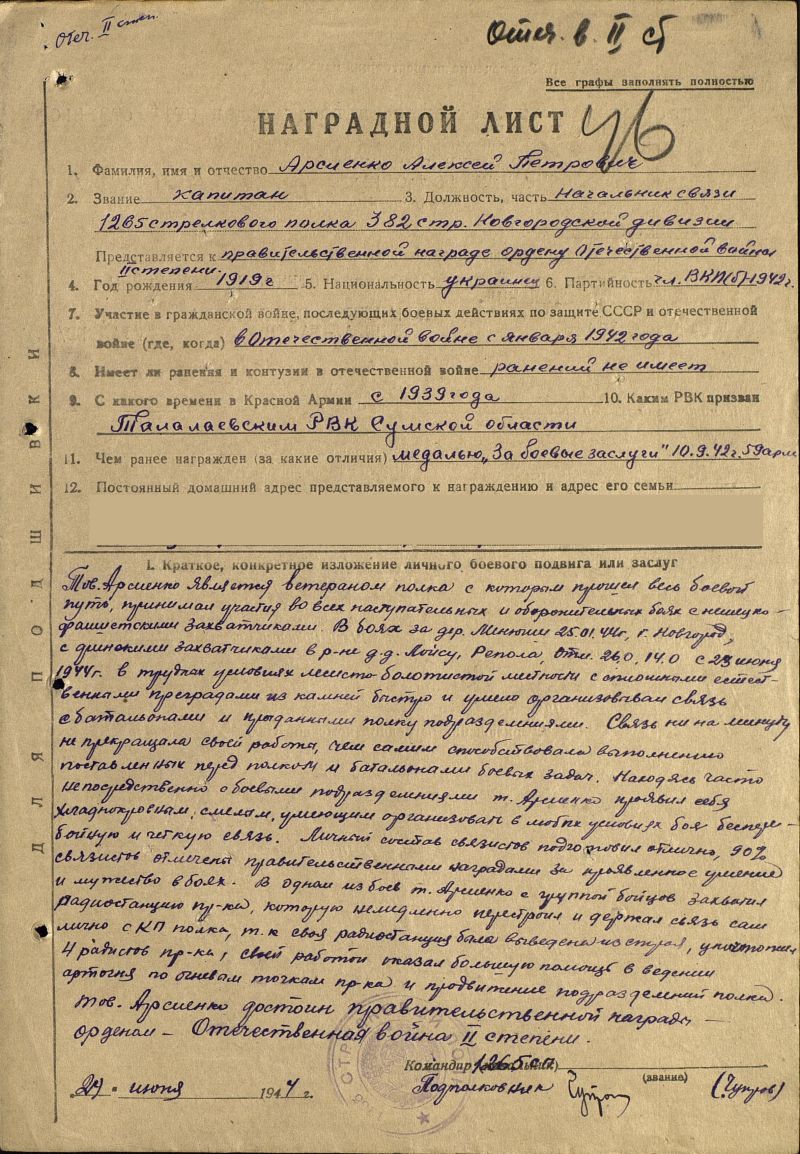 Отеч. II степ.
Отеч. в. II ст
Все графы заполнять полностью
НАГРАДНОЙ ЛИСТ
46
1. Фамилия, имя и отчество Арсиенко Алексей Петрович
2. Звание капитан 3. Должность, часть Начальник связи
1265 стрелкового полка 382 стр. Новгородской дивизии
Представляется к правительственной награде ордену Отечественной войны
II степени.
4. Год рождения 1919 г 5. Национальность украинец 6. Партийность чл. ВКП(б) 1942 г.
7. Участие в гражданской войне, последующих боевых действиях по защите СССР и отечественной
войне (где, когда) в Отечественной войне с января 1942 года
8. Имеет ли ранения и контузии в отечественной войне ранений не имеет
9. С какого времени в Красной Армии с 1939 года 10. Каким РВК призван
Талалаевским РВК Сумской области
11. Чем ранее награжден (за какие отличия) медалью „За боевые заслуги" 10.9.42 г. 59 арм
12. Постоянный домашний адрес представляемого к награждению и адрес его семьи
I. Краткое, конкретное изложение личного боевого подвига или заслуг
Тов. Арсиенко является ветераном полка с которым прошел весь боевой
путь, принимал участия во всех наступательных и оборонительных боях с немецко-
фашистскими захватчиками. В боях за дер. Менюши 25.01.44 г, г. Новгород,
с финскими захватчиками в р-не д.д. Лойсу, Репола, Отм. 26,0, 14,0 с 23 июня
1944 г. в трудных условиях лесисто-болотистой местности с сплошными естест-
венными преградами из камней быстро и умело организовывал связь
с батальонами и приданными полку подразделениями. Связь ни на минуту
не прекращала своей работы, чем самим способствовала выполнению
поставленных перед полком и батальонами боевых задач. Находясь часто
непосредственно с боевыми подразделениями т. Арсиенко проявил себя
хладнокровным, смелым, умеющим организовать в любых условиях боя беспере-
бойную и четкую связь. Личный состав связистов подготовил отлично, 90%
связистов отмечены правительственными наградами за проявленное умение
и мужество в боях. В одном из боев т. Арсиенко с группой бойцов захватил
радиостанцию пр-ка, которую немедленно перестроил и держал связь сам
лично с КП полка, т.к своя радиостанция была выведена из строя, уничтожил
4 радистов пр-ка, своей работой оказал большую помощь в ведении
артогня по огневым точкам пр-ка и продвижение подразделений полка.
Тов. Арсиенко достоин правительственной награды –
орденом – Отечественная война II степени.
Командир 1265 сп
Подполковник (звание) (Чупров)
„29" июня 1944 г.
ДЛЯ ПОДШИВКИ